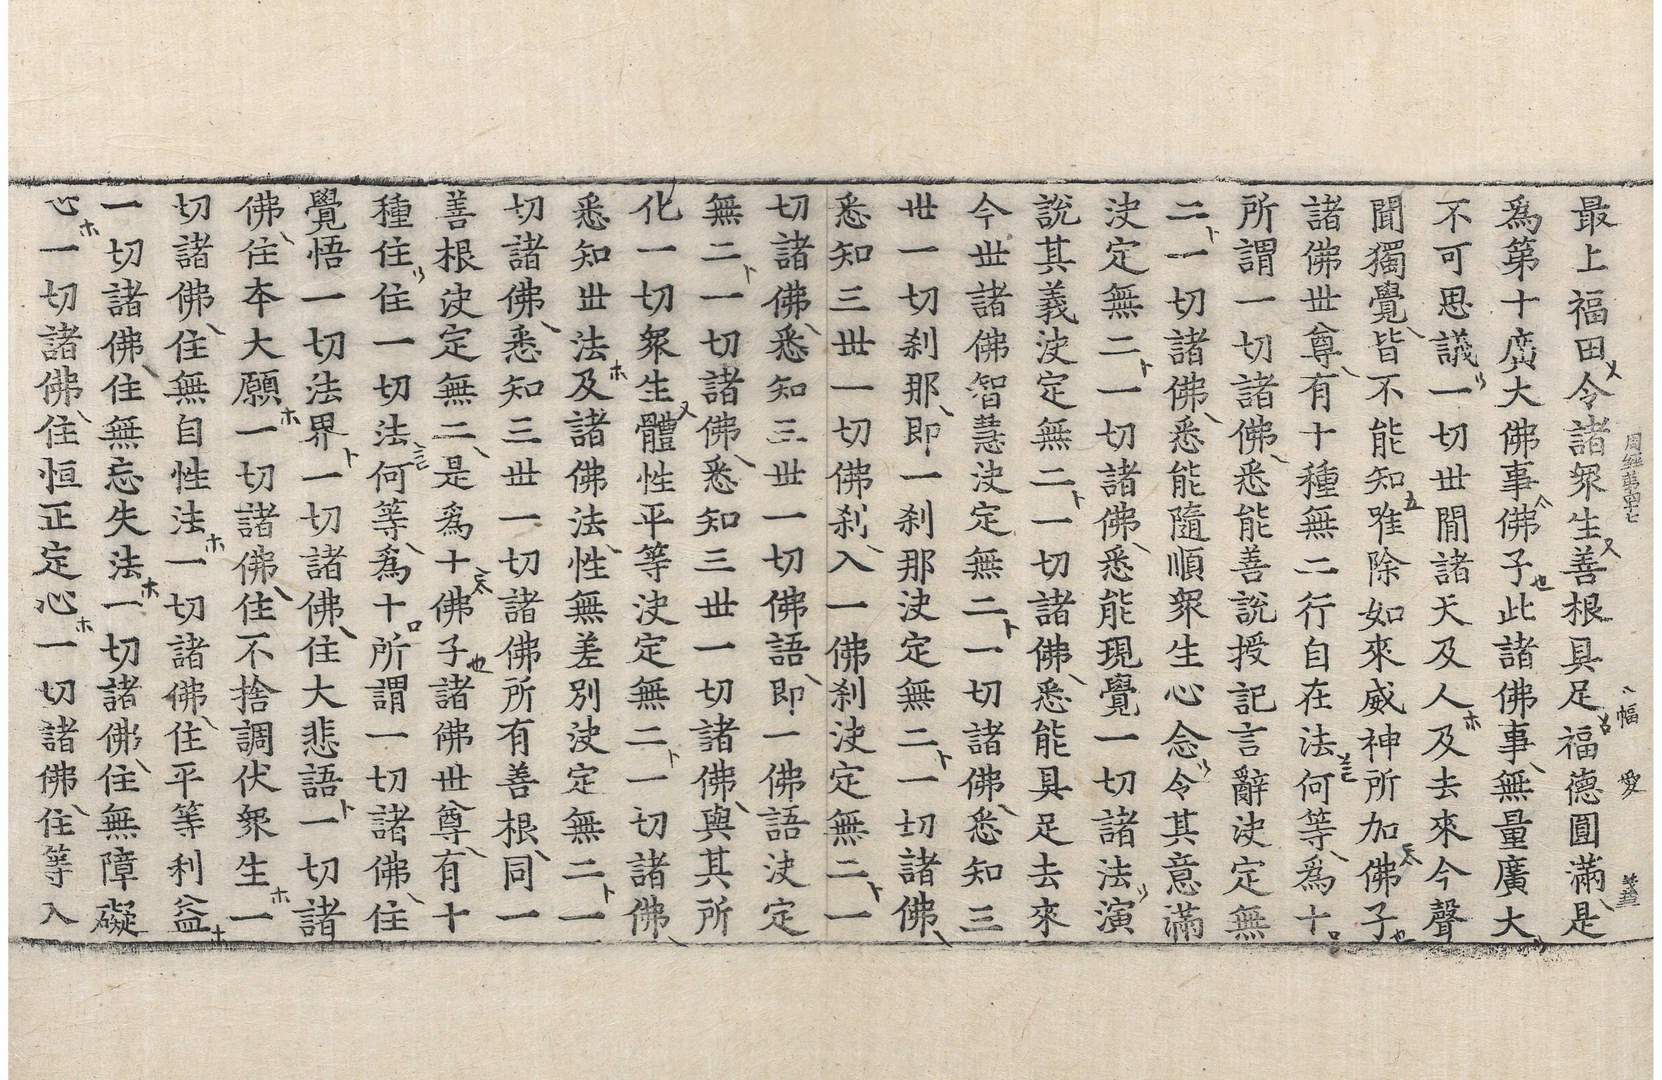 周經第四十七
幅
愛
最上福田令諸衆生善根具足福德圓滿是
爲第十廣大佛事佛子此諸佛事無量廣大
不可思議一切世間諸天及人及去來今聲
聞獨覺皆不能知唯除如來威神所加佛子
諸佛世尊有十種無二行自在法何等爲十
所謂一切諸佛悉能善說授記言辭決定無
二一切諸佛悉能隨順衆生心念令其意滿
決定無二一切諸佛悉能現覺一切諸法演
說其義決定無二一切諸佛悉能具足去來
今世諸佛智慧決定無二一切諸佛悉知三
世一切刹那即一刹那決定無二一切諸佛
悉知三世一切佛刹入一佛刹決定無二一
切諸佛悉知三世一切佛語即一佛語決定
無二一切諸佛悉知三世一切諸佛與其所
化一切衆生體性平等決定無二一切諸佛
悉知世法及諸佛法性無差別決定無二一
切諸佛悉知三世一切諸佛所有善根同一
善根決定無二是爲十佛子諸佛世尊有十
種住住一切法何等爲十所謂一切諸佛住
覺悟一切法界一切諸佛住大悲語一切諸
佛住夲大願一切諸佛住不捨調伏衆生一
切諸佛住無自性法一切諸佛住平等利益
一切諸佛住無忘失法一切諸佛住無障礙
心一切諸佛住恒正定心一切諸佛住等入